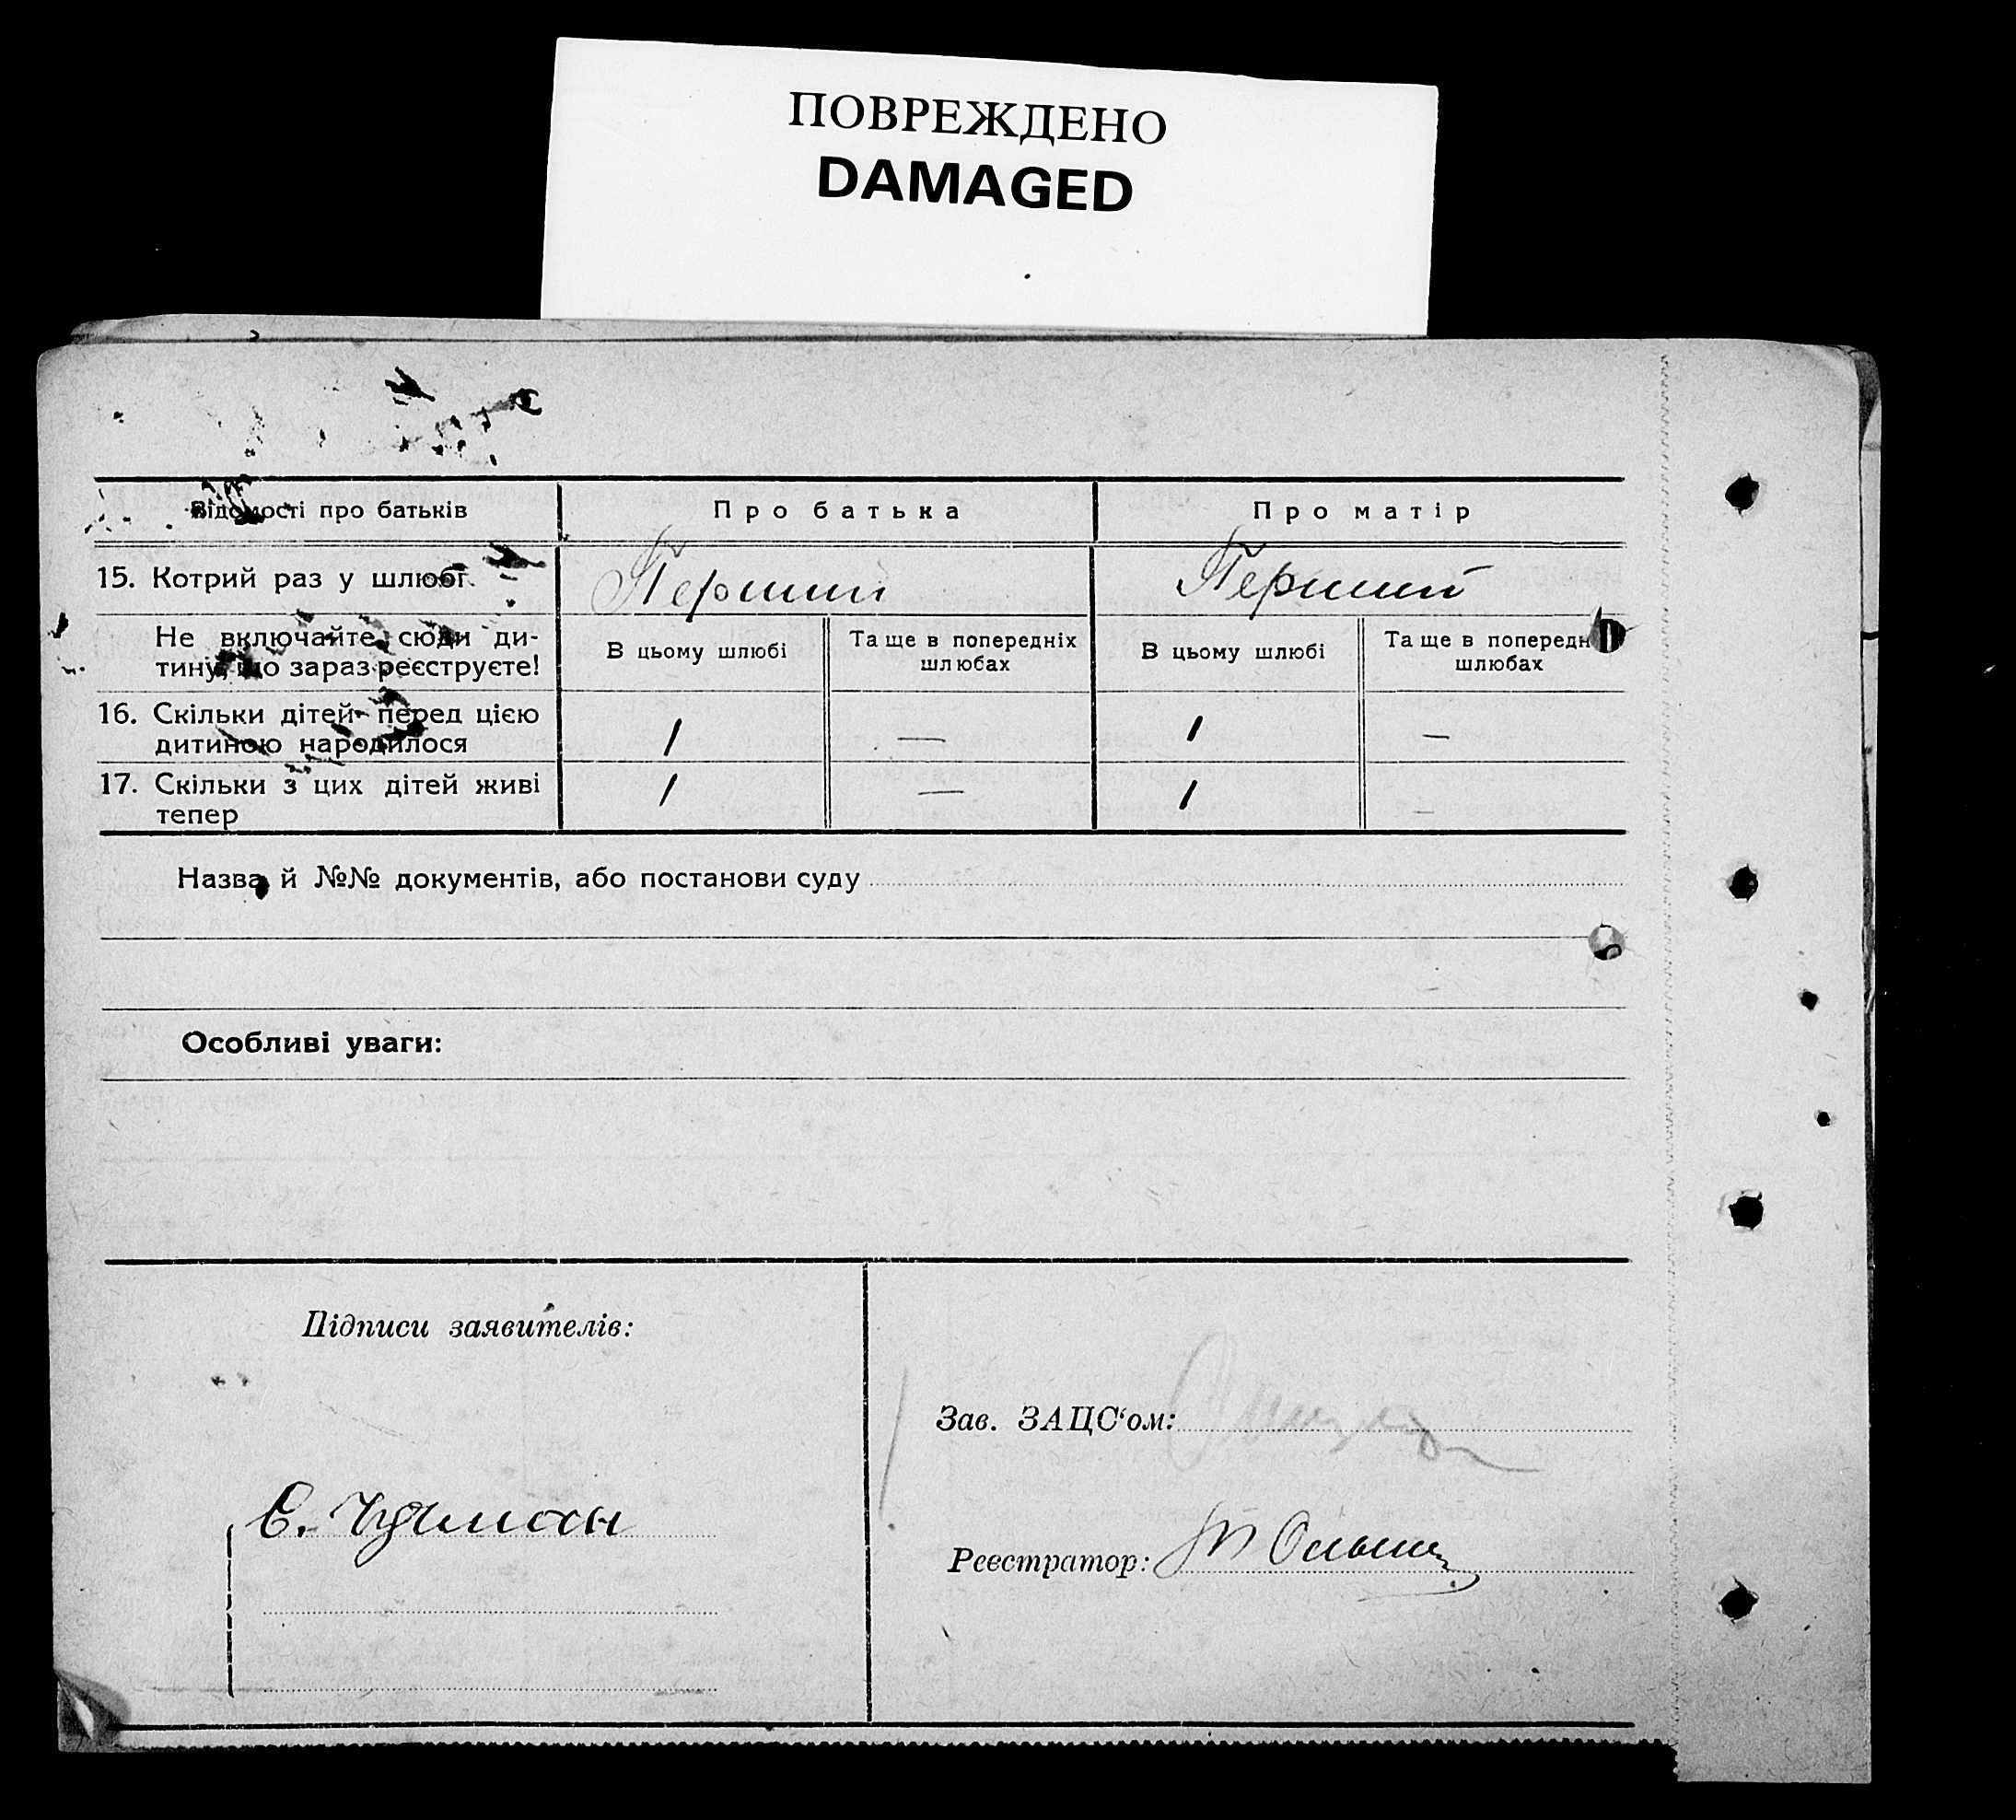 ПОВРЕЖДЕНО
DAMAGED
Відомості про батьків Про батька Про матір
15. Котрий раз у шлюбі. Перший Перший
Не включайте сюди ди-
тину, що зараз реєструєте!
В цьому шлюбі
Та ще в попередніх
шлюбах
В цьому шлюбі
Та ще в попередн
шлюбах
16. Скільки дітей перед цією
дитиною народилося
1 — 1 —
17. Скільки з цих дітей живі
тепер
1 — 1 —
Назва й №№ документів, або постанови суду
Особливі уваги:
Підписи заявителів:
Зав. ЗАЦС‘ом:
Реєстратор: